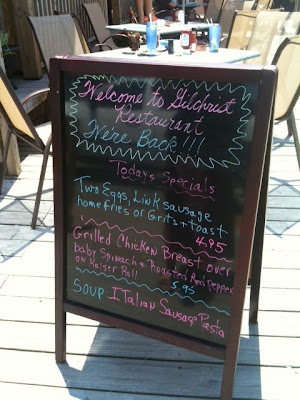 Welcome to Gilchrist
Restaurant
We're Back!!!!
Today's Specials
Two Eggs, Link sausage
home fries or Grits + toast
4.95
Grilled Chicken Breast over
baby Spinach + Roasted Red Pepper
on Kaiser Roll 5.95
SOUP: Italian Sausage Pasta